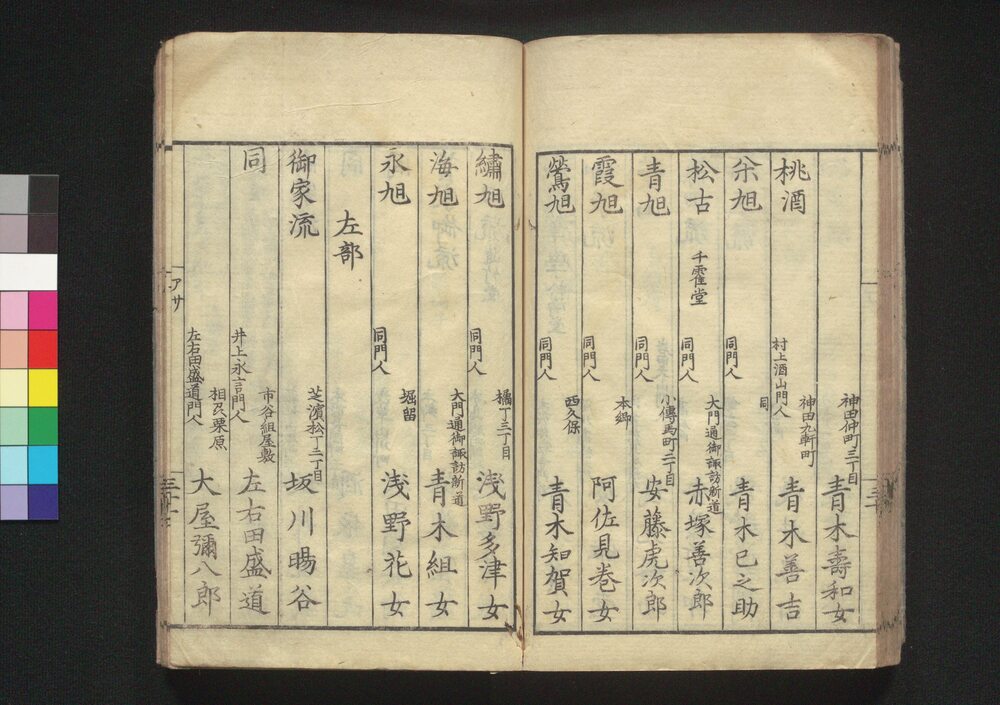 神田仲町三丁目 青木壽和女
桃酒 村上酒山門人 神田九軒町 青木善吉
朶旭 同門人 同 青木巳之助
松古 千霍堂 同門人 大門通御諏訪新道 赤塚善次郎
青旭 同門人 小傳馬町二丁目 安藤虎次郎
霞旭 同門人 本郷 阿佐見巻女
鶯旭 同門人 西久保 青木知賀女
繡旭 同門人 橘丁三丁目 浅野多津女
海旭 大門通御諏訪新道 青木組女
永旭 同門人 堀留 浅野花女
左部
御家流 芝濱松丁二丁目 坂川暘谷
同 井上永言門人 市谷組屋敷 左右田盛道
左右田盛道門人 相州栗原 大屋彌八郎
アサ